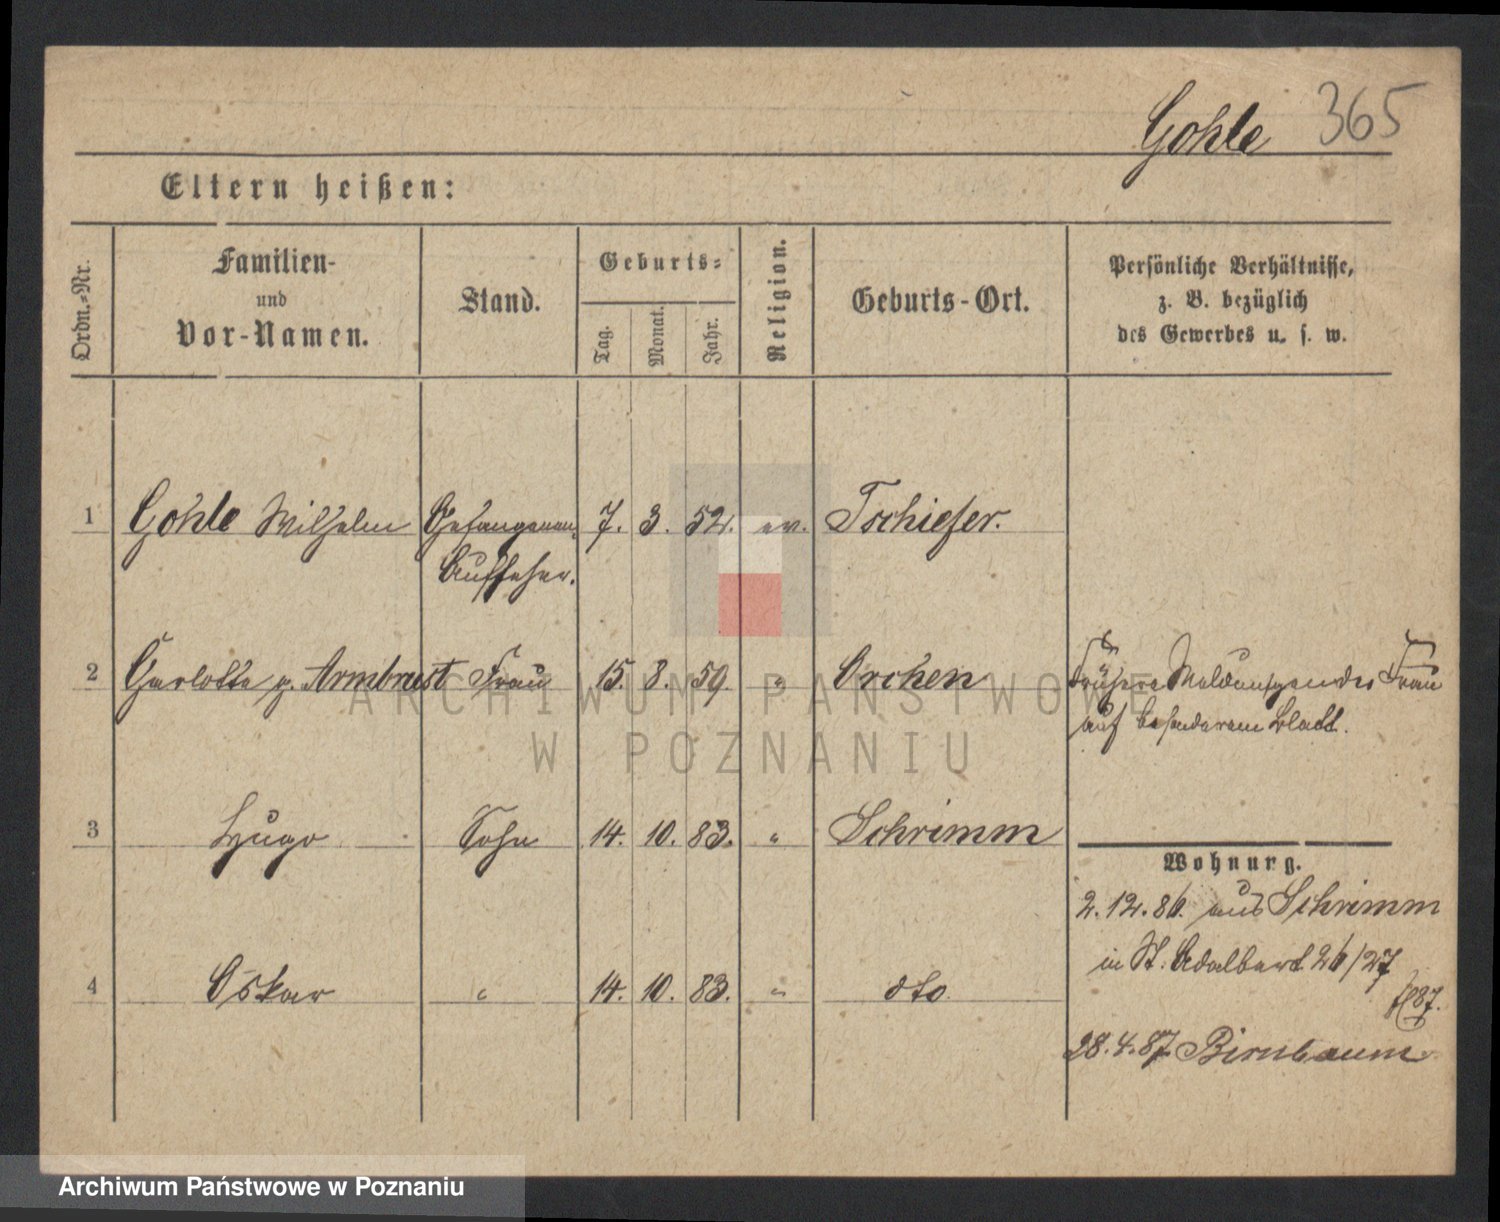 Gohle 365
Eltern heißen:
Ordn.-Nr.
Familien-
und
Vor-Namen.
Stand.
Geburts-
Tag.
Monat.
Jahr.
Religion.
Geburts-Ort.
Persönliche Verhältnisse,
z. B. bezüglich
des Gewerbes u. s. w.
1 Gohle Wilhelm Gefangenen 7. 3. 52. ev. Tschiefer.
Aufseher.
2 Charlotte g. Armbrust Frau 15. 8. 59. " Orchen
Frühere Meldungen der Frau
auf besonderem Blatt.
3 Hugo Sohn 14. 10. 83. " Schrimm
4 Oskar " 14. 10. 83. " dto
Wohnung.
2.12.86. aus Schrimm
in St. Adalbert 26/27
87.
28.4.87 Birnbaum
ARCHIWUM PAŃSTWOWE
W POZNANIU
Archiwum Państwowe w Poznaniu